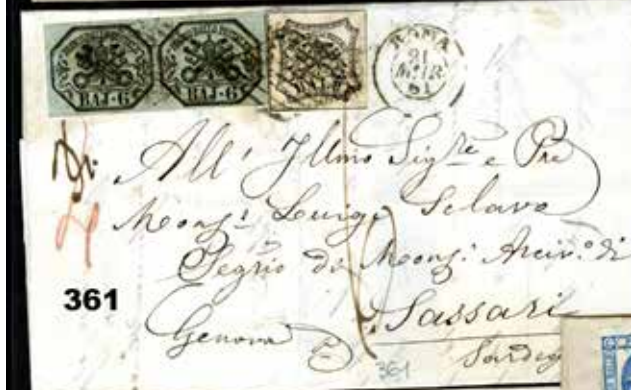 BAJ-6 BAJ-6
ROMA
21
MAR
61
All' Illmo Sigre e Pre
Monsi Luigi Selavo
Segrio di Monsi. Arciv.o di
Sassari
Genova
Sardeg
361
361